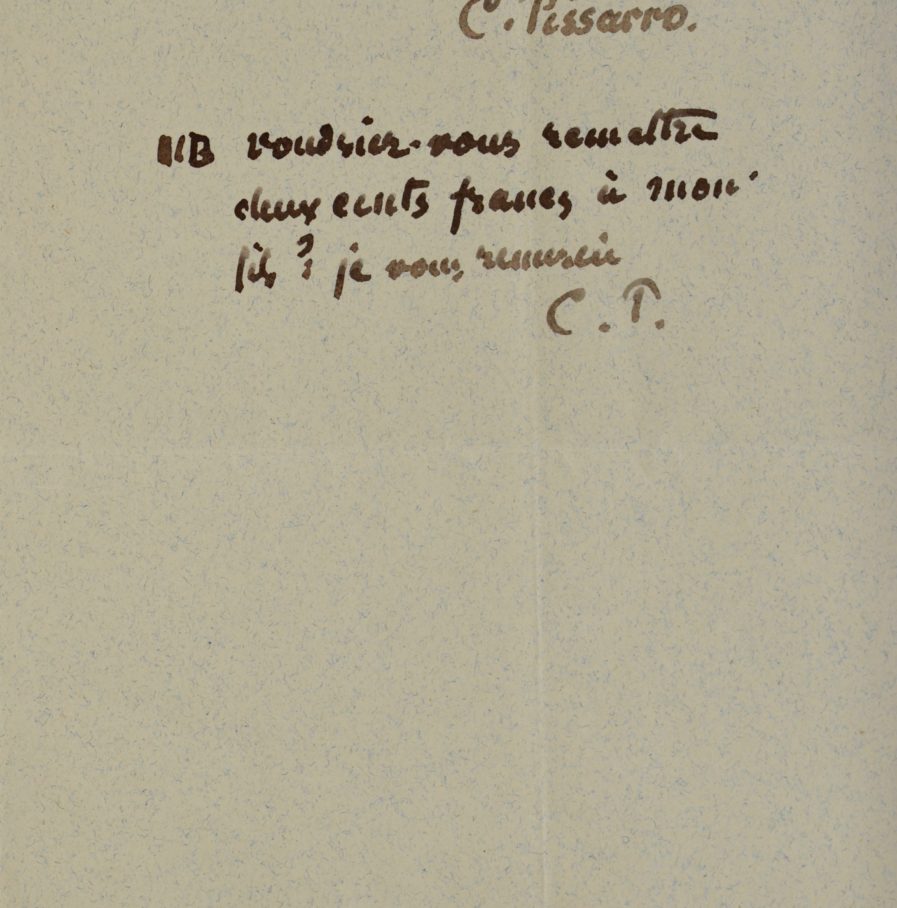 C. Pissarro.
NB voudriez-vous remettre
deux cents francs à mon
fils ? je vous remercie
C. P.